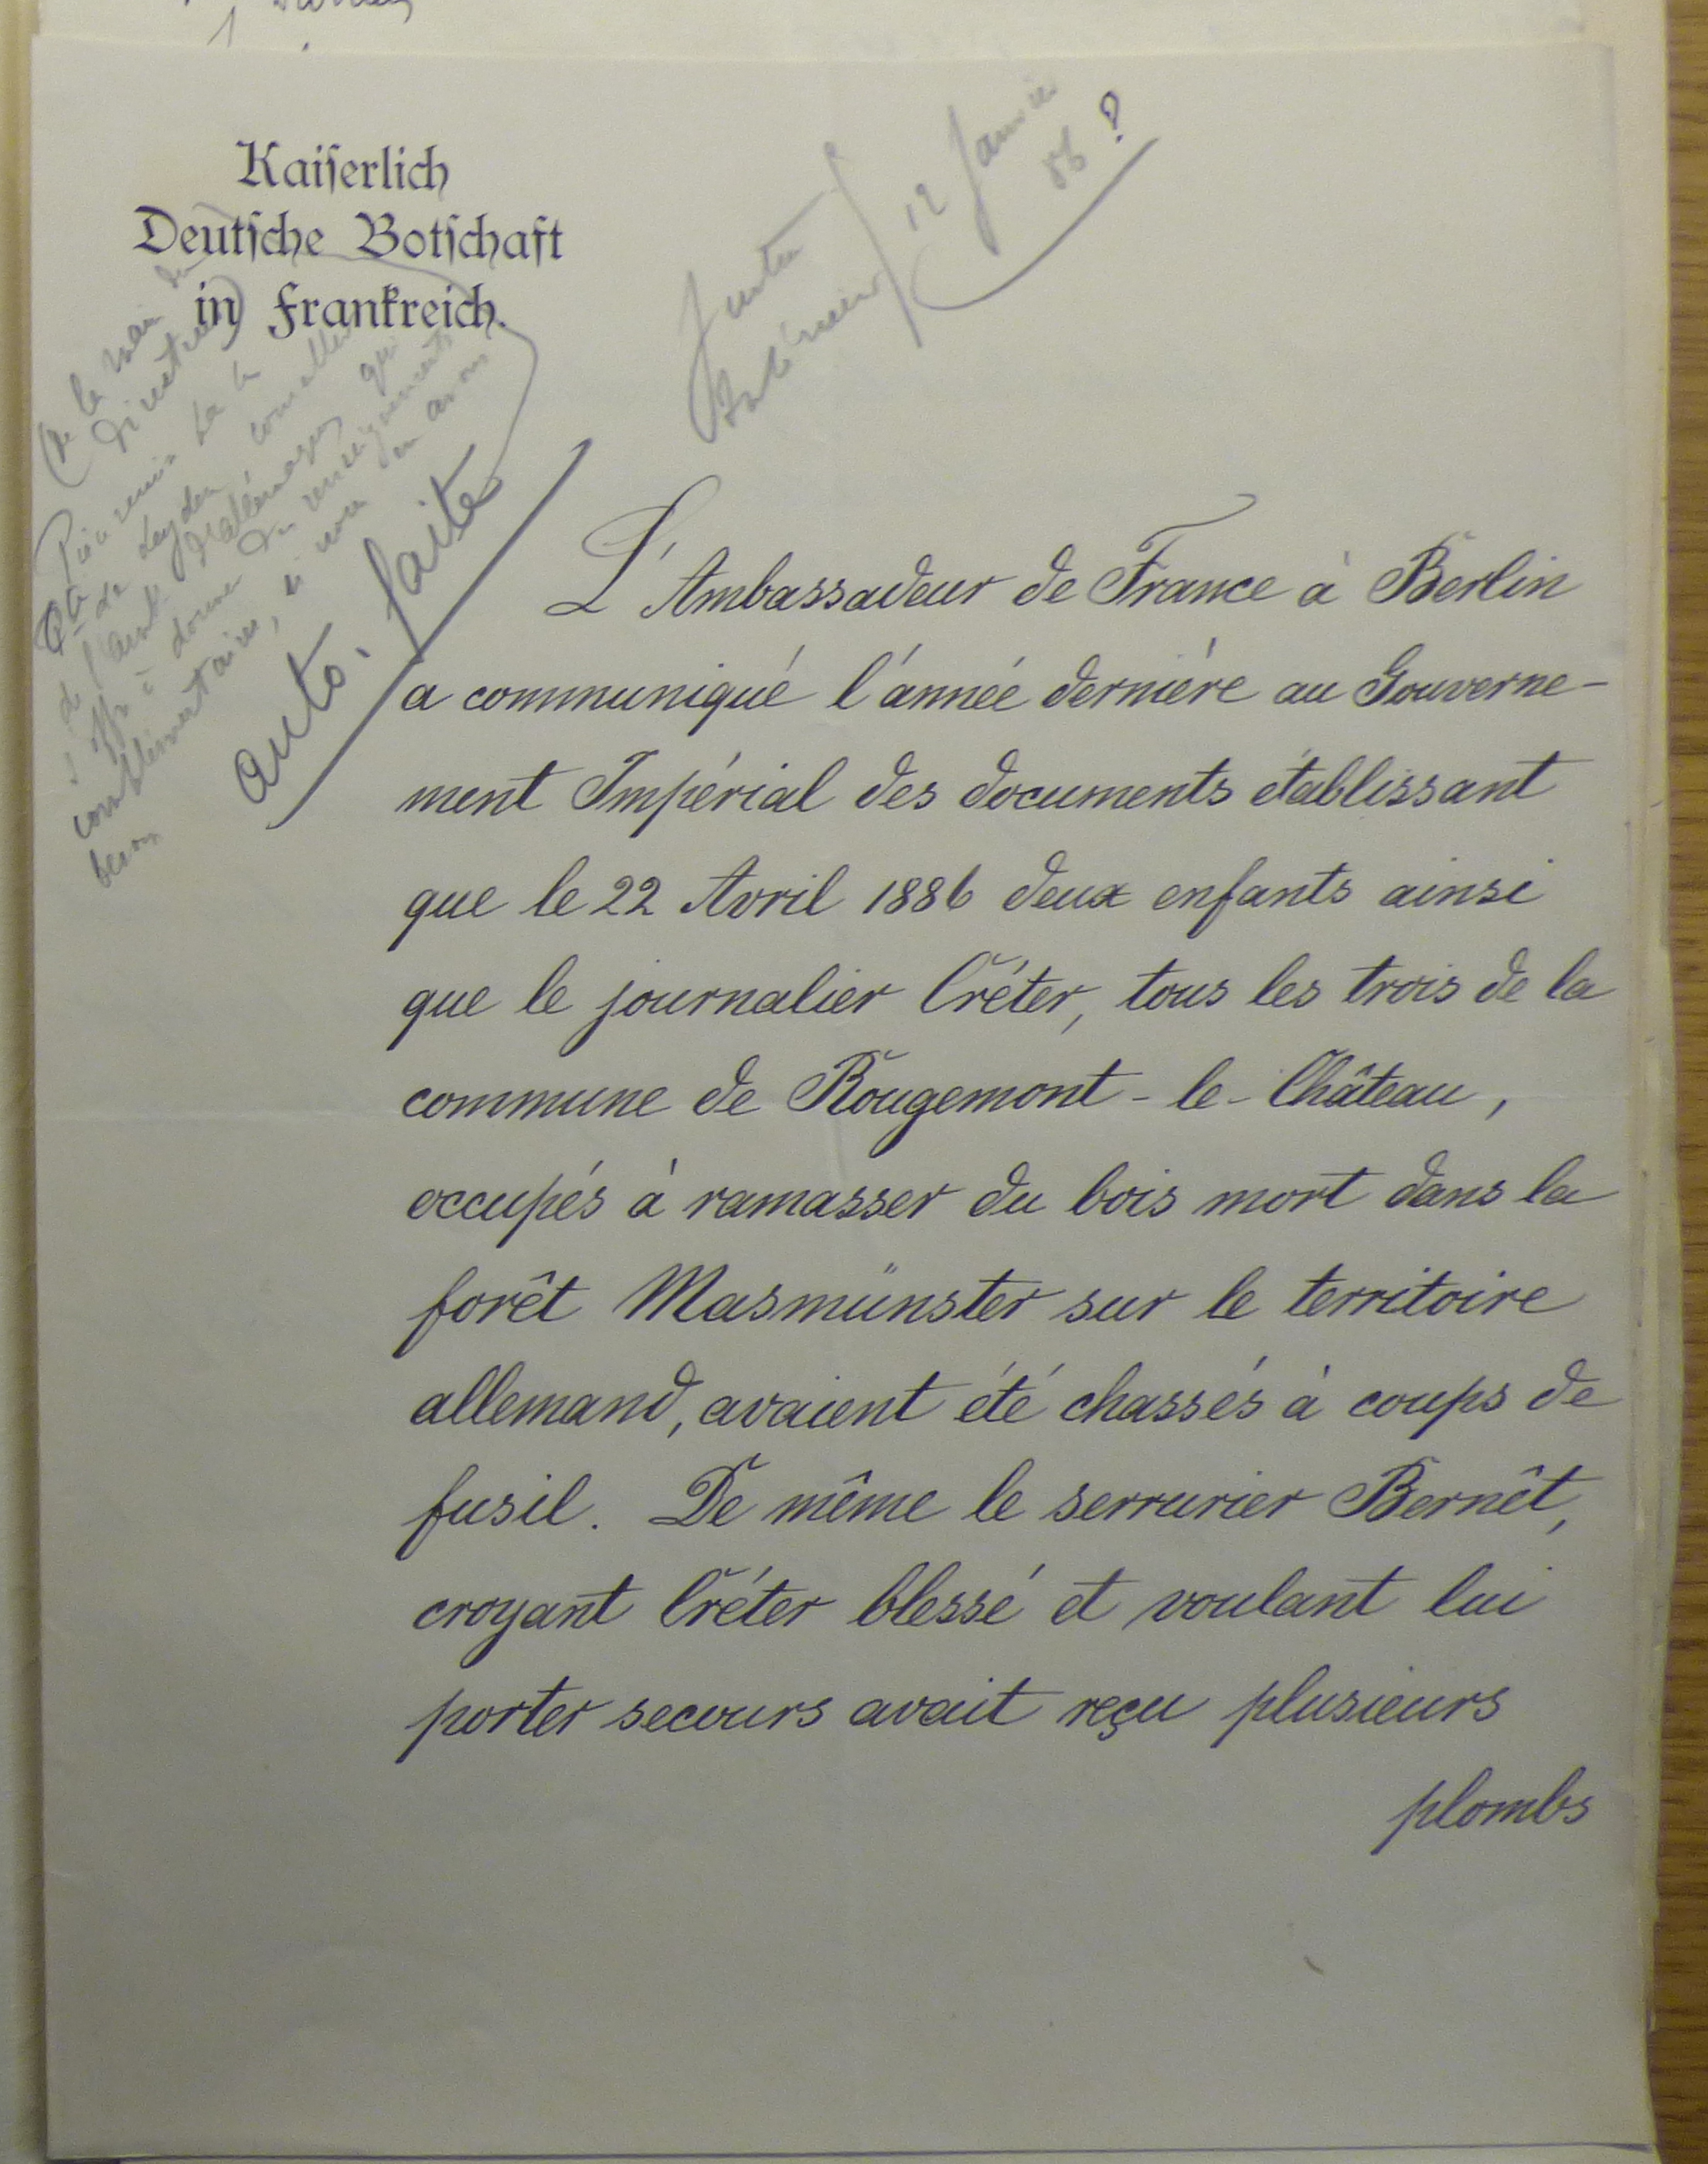 Kaiserlich
Deutsche Botschaft
in Frankreich.
12 Janvier
86 ?
Justice
Intérieur
(de la main du
Directeur)
Pièce remise
de Leyden conseiller
de l'amb. d'Allemagne qui
s'offre à donner des renseignements
complémentaires, si nous en avons
besoin
auto. faite
L'Ambassadeur de France à Berlin
a communiqué l'année dernière au Gouverne-
ment Impérial des documents établissant
que le 22 Avril 1886 deux enfants ainsi
que le journalier Créter, tous les trois de la
commune de Rougemont-le-Château,
occupés à ramasser du bois mort dans la
forêt Masmünster sur le territoire
allemand, avaient été chassés à coups de
fusil. De même le serrurier Bernêt,
croyant Créter blessé et voulant lui
porter secours avait reçu plusieurs
plombs